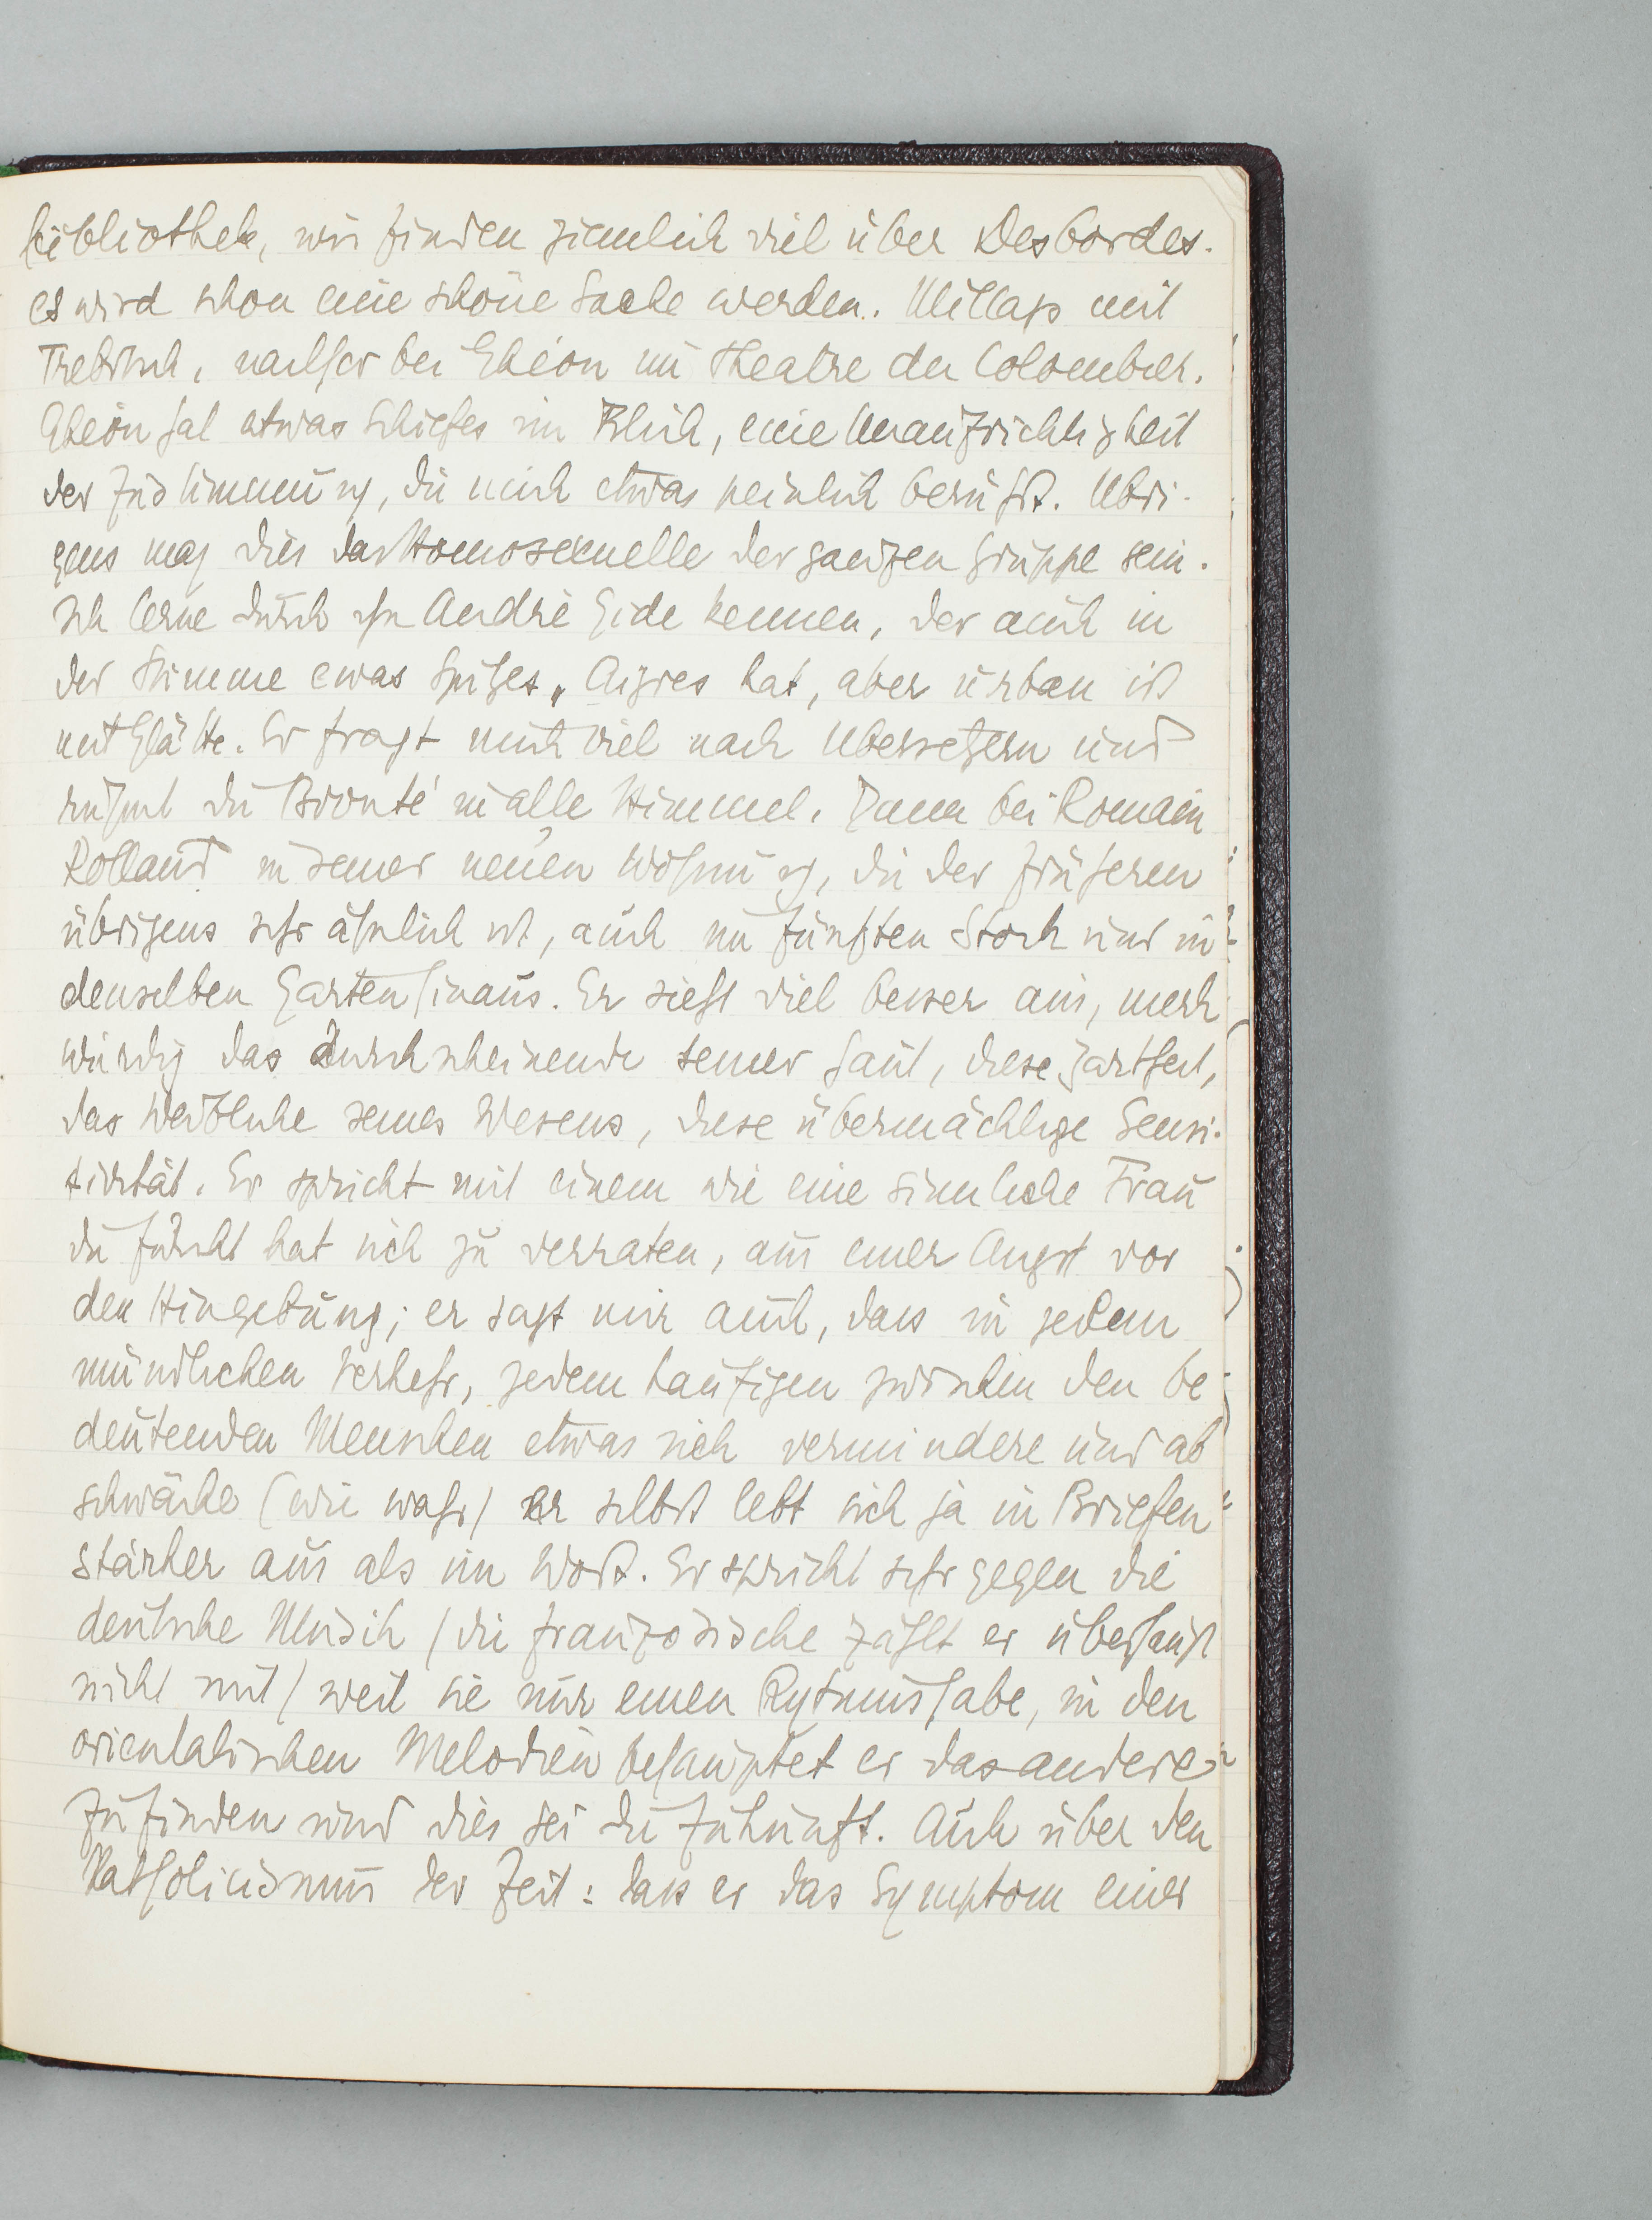 bibliothek, wir finden ziemlich viel über Desbordes.
es wird schon eine schöne Sache werden. Mittags mit
Trebitsch, nachher bei Ghéon im Theatre du Colombier.
Ghéon hat etwas Schiefes im Blick, eine Unaufrichtigkeit
der Zustimmung, die mich etwas peinlich berührt. Übri-
gens mag dies das Homosexuelle der ganzen Gruppe sein.
Ich lerne durch ihn André Gide kennen, der auch in
der Stimme ewas Spitzes, Aigres hat, aber urban ist
mit Glätte. Er fragt mich viel nach Übersetzern und
rühmt die Bronté in alle Himmel. Dann bei Romain
Rolland in seiner neuen Wohnung, die der früheren
übrigens sehr ähnlich ist, auch im fünften Stock und in
denselben Garten hinaus. Er sieht viel besser aus, merk
würdig das durchscheinende seiner Haut, diese Zartheit,
das Weibliche seines Wesens, diese übermächtige Sensi-
tivität. Er spricht mit einem wie eine sinnliche Frau
die Furcht hat sich zu verraten, aus einer Angst vor
der Hingebung; er sagt mir auch, dass in jedem
mündlichen Verkehr, jedem häufigen zwischen den be
deutenden Menschen etwas sich vermindere und ab
schwäche (wie wahr) er selbst lebt sich ja in Briefen
stärker aus als im Wort. Er spricht sehr gegen die
deutsche Musik (die französische zählt er überhaupt
nicht mit) weil sie nur einen Rytmus habe, in den
orientalischen Melodien behauptet er das andere
zu finden und dies sei die Zukunft. Auch über den
Katholicismus der Zeit: dass er das Symptom einer